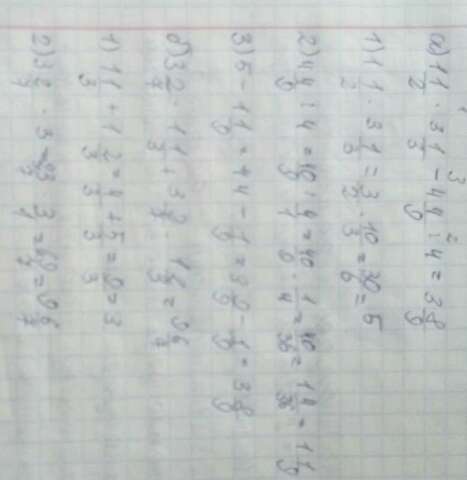 а) 1 1/2 · 3 1/3 - 4 4/9 : 4 = 3 8/9
1) 1 1/2 · 3 1/3 = 3/2 · 10/3 = 30/6 = 5
2) 4 4/9 : 4 = 40/9 : 4/1 = 40/9 · 1/4 = 40/36 = 1 4/36 = 1 1/9
3) 5 - 1 1/9 = 4 - 1/9 = 3 9/9 - 1/9 = 3 8/9
б) 3 2/7 · 1 1/3 + 3 2/7 · 1 2/3 = 9 6/7
1) 1 1/3 + 1 2/3 = 4/3 + 5/3 = 9/3 = 3
2) 3 2/7 · 3 = 23/7 · 3/1 = 69/7 = 9 6/7